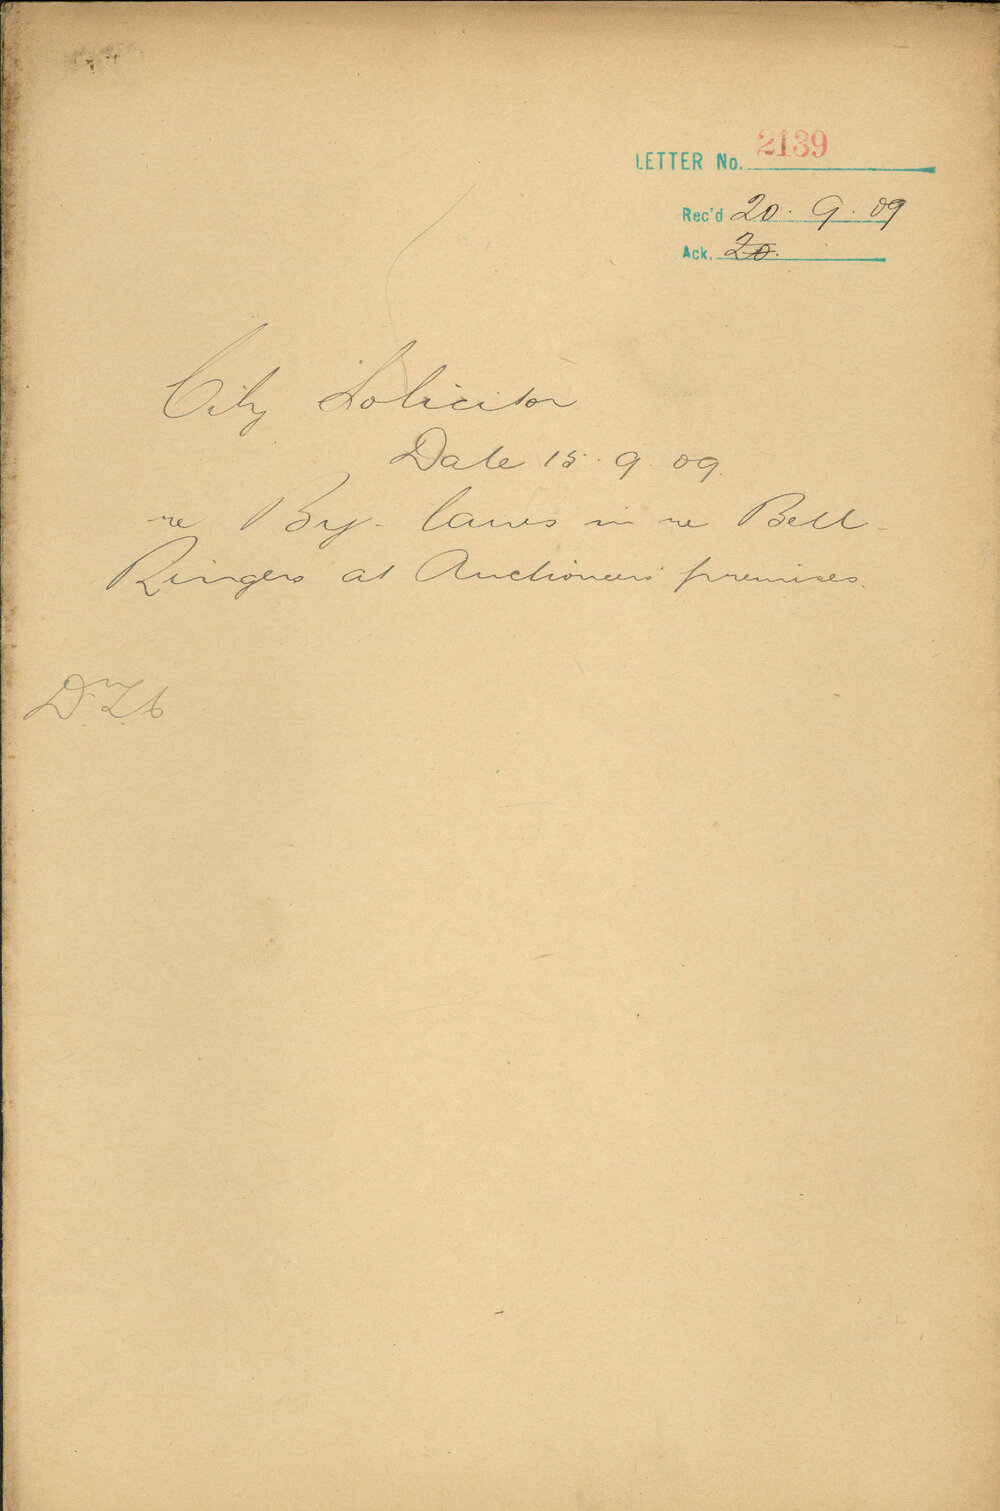 LETTER No. 2139
Rec'd 20. 9. 09
Ack. 20.
City Solicitor
Date 15. 9. 09.
re By-laws in re Bell-
Ringers at Auctioneers' premises.